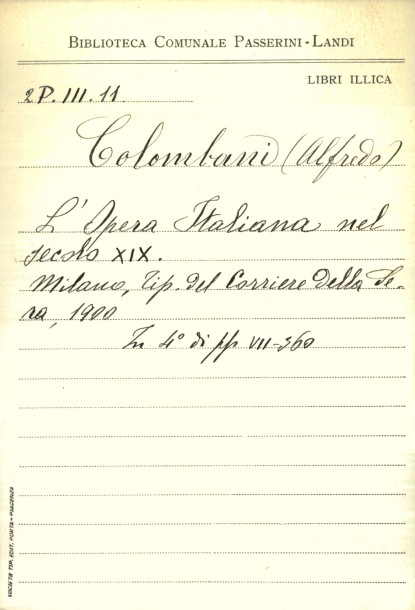 BIBLIOTECA COMUNALE PASSERINI-LANDI
LIBRI ILLICA
2P. III. 11
Colombani (Alfredo)
L'Opera Italiana nel
secolo XIX.
Milano, Tip. del Corriere della Se-
ra, 1900
In 4° di pp VII-360
SOCIETÀ TIP. EDIT. PORTA - PIACENZA